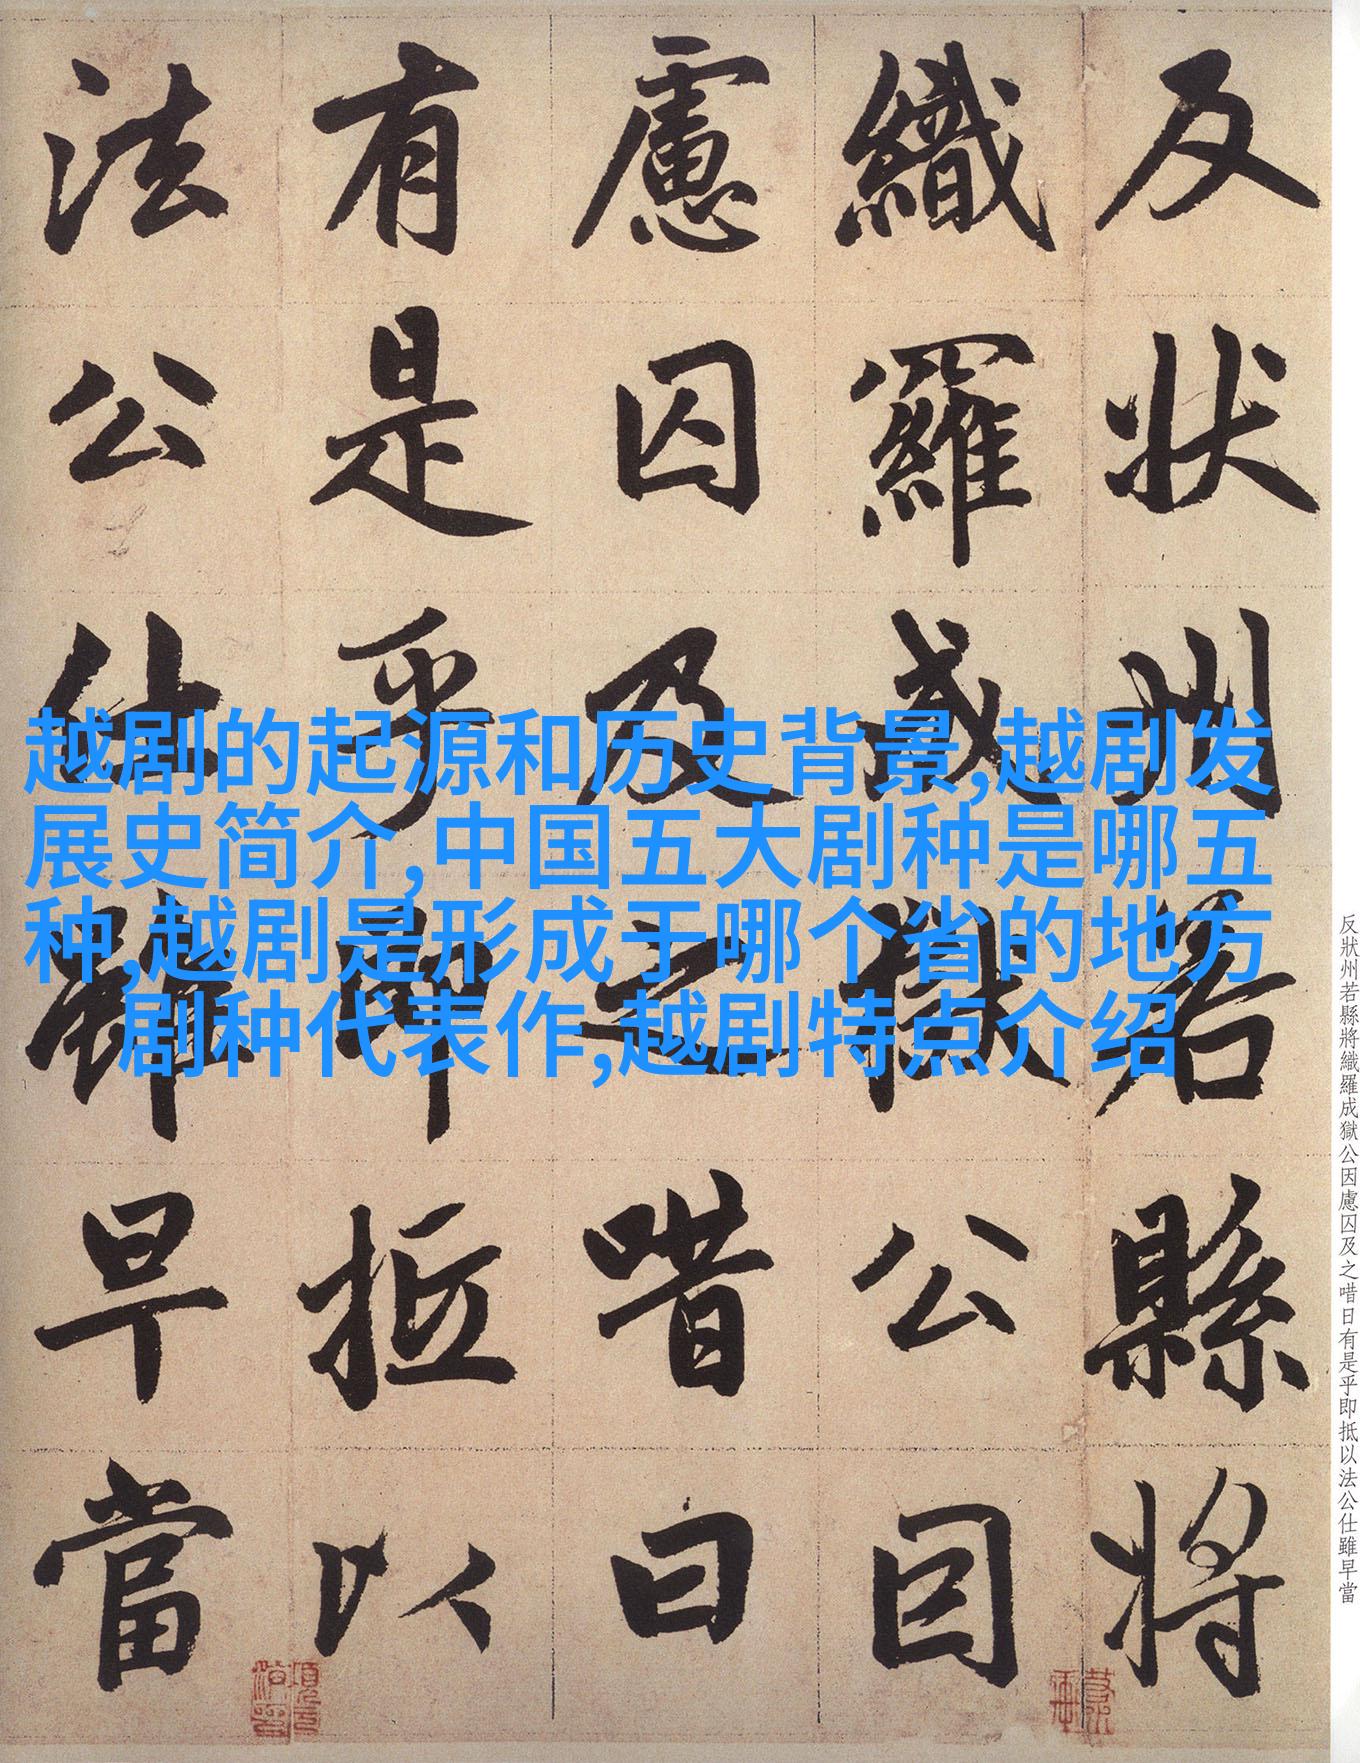 反狀州若縣將
織羅成獄公因
慮囚及之唶曰
有是乎即抵以
法公仕雖早當
越剧的起源和历史背景,越剧发
展史简介,中国五大剧种是哪五
种,越剧是形成于哪个省的地方
剧种代表作,越剧特点介绍
反狀州若縣將織羅成獄公因慮囚及之唶日有是乎即抵以法公仕雖早當